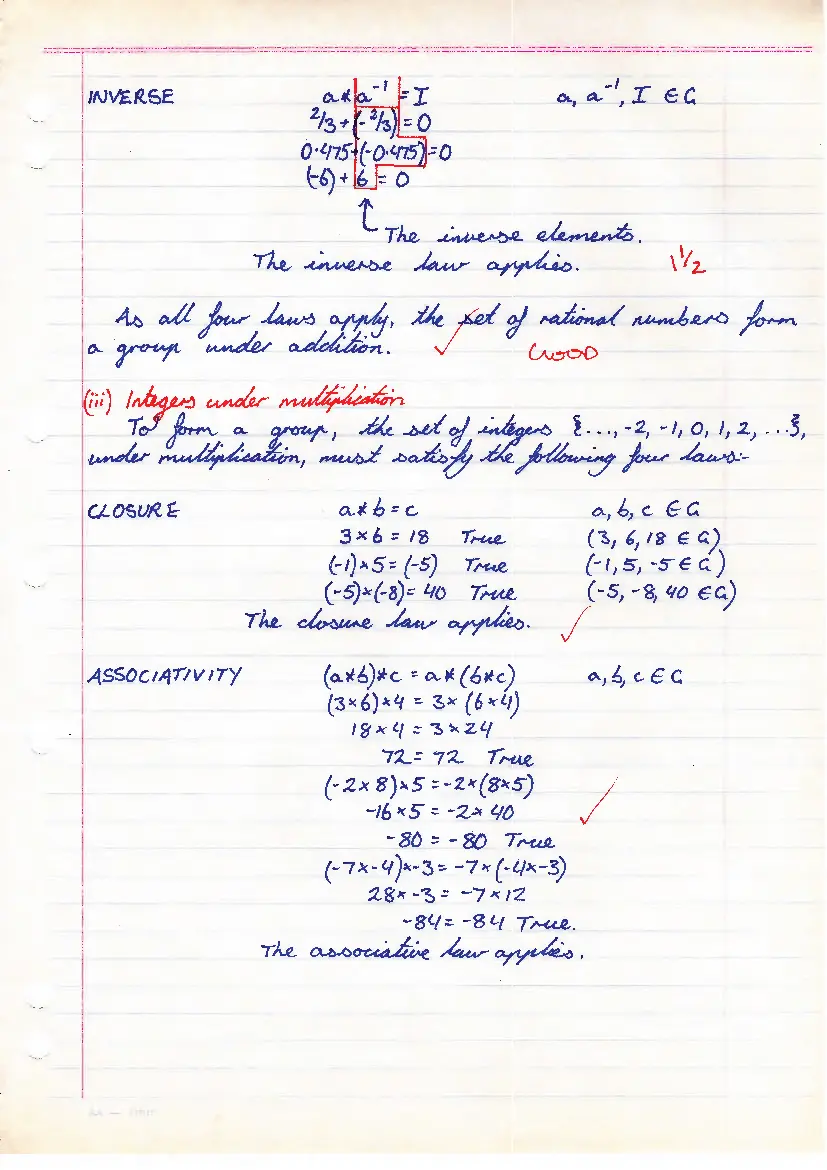 INVERSE a * a⁻¹ = I a, a⁻¹, I ∈ G
2/3 + (-2/3) = 0
0·475 + (-0·475) = 0
(-6) + 6 = 0
↑ The inverse elements.
The inverse law applies. 1½
As all four laws apply, the set of rational numbers form
a group under addition. ✓ GOOD
(iii) Integers under multiplication
To form a group, the set of integers {..., -2, -1, 0, 1, 2, ...},
under multiplication, must satisfy the following four laws:-
CLOSURE a * b = c a, b, c ∈ G
3 × 6 = 18 True (3, 6, 18 ∈ G)
(-1) × 5 = (-5) True (-1, 5, -5 ∈ G)
(-5) × (-8) = 40 True (-5, -8, 40 ∈ G)
The closure law applies. ✓
ASSOCIATIVITY (a*b)*c = a*(b*c) a, b, c ∈ G
(3×6)×4 = 3×(6×4)
18 × 4 = 3 × 24
72 = 72 True
(-2×8)×5 = -2×(8×5)
-16 × 5 = -2 × 40 ✓
-80 = -80 True
(-7×-4)×-3 = -7×(-4×-3)
28 × -3 = -7 × 12
-84 = -84 True.
The associative law applies.